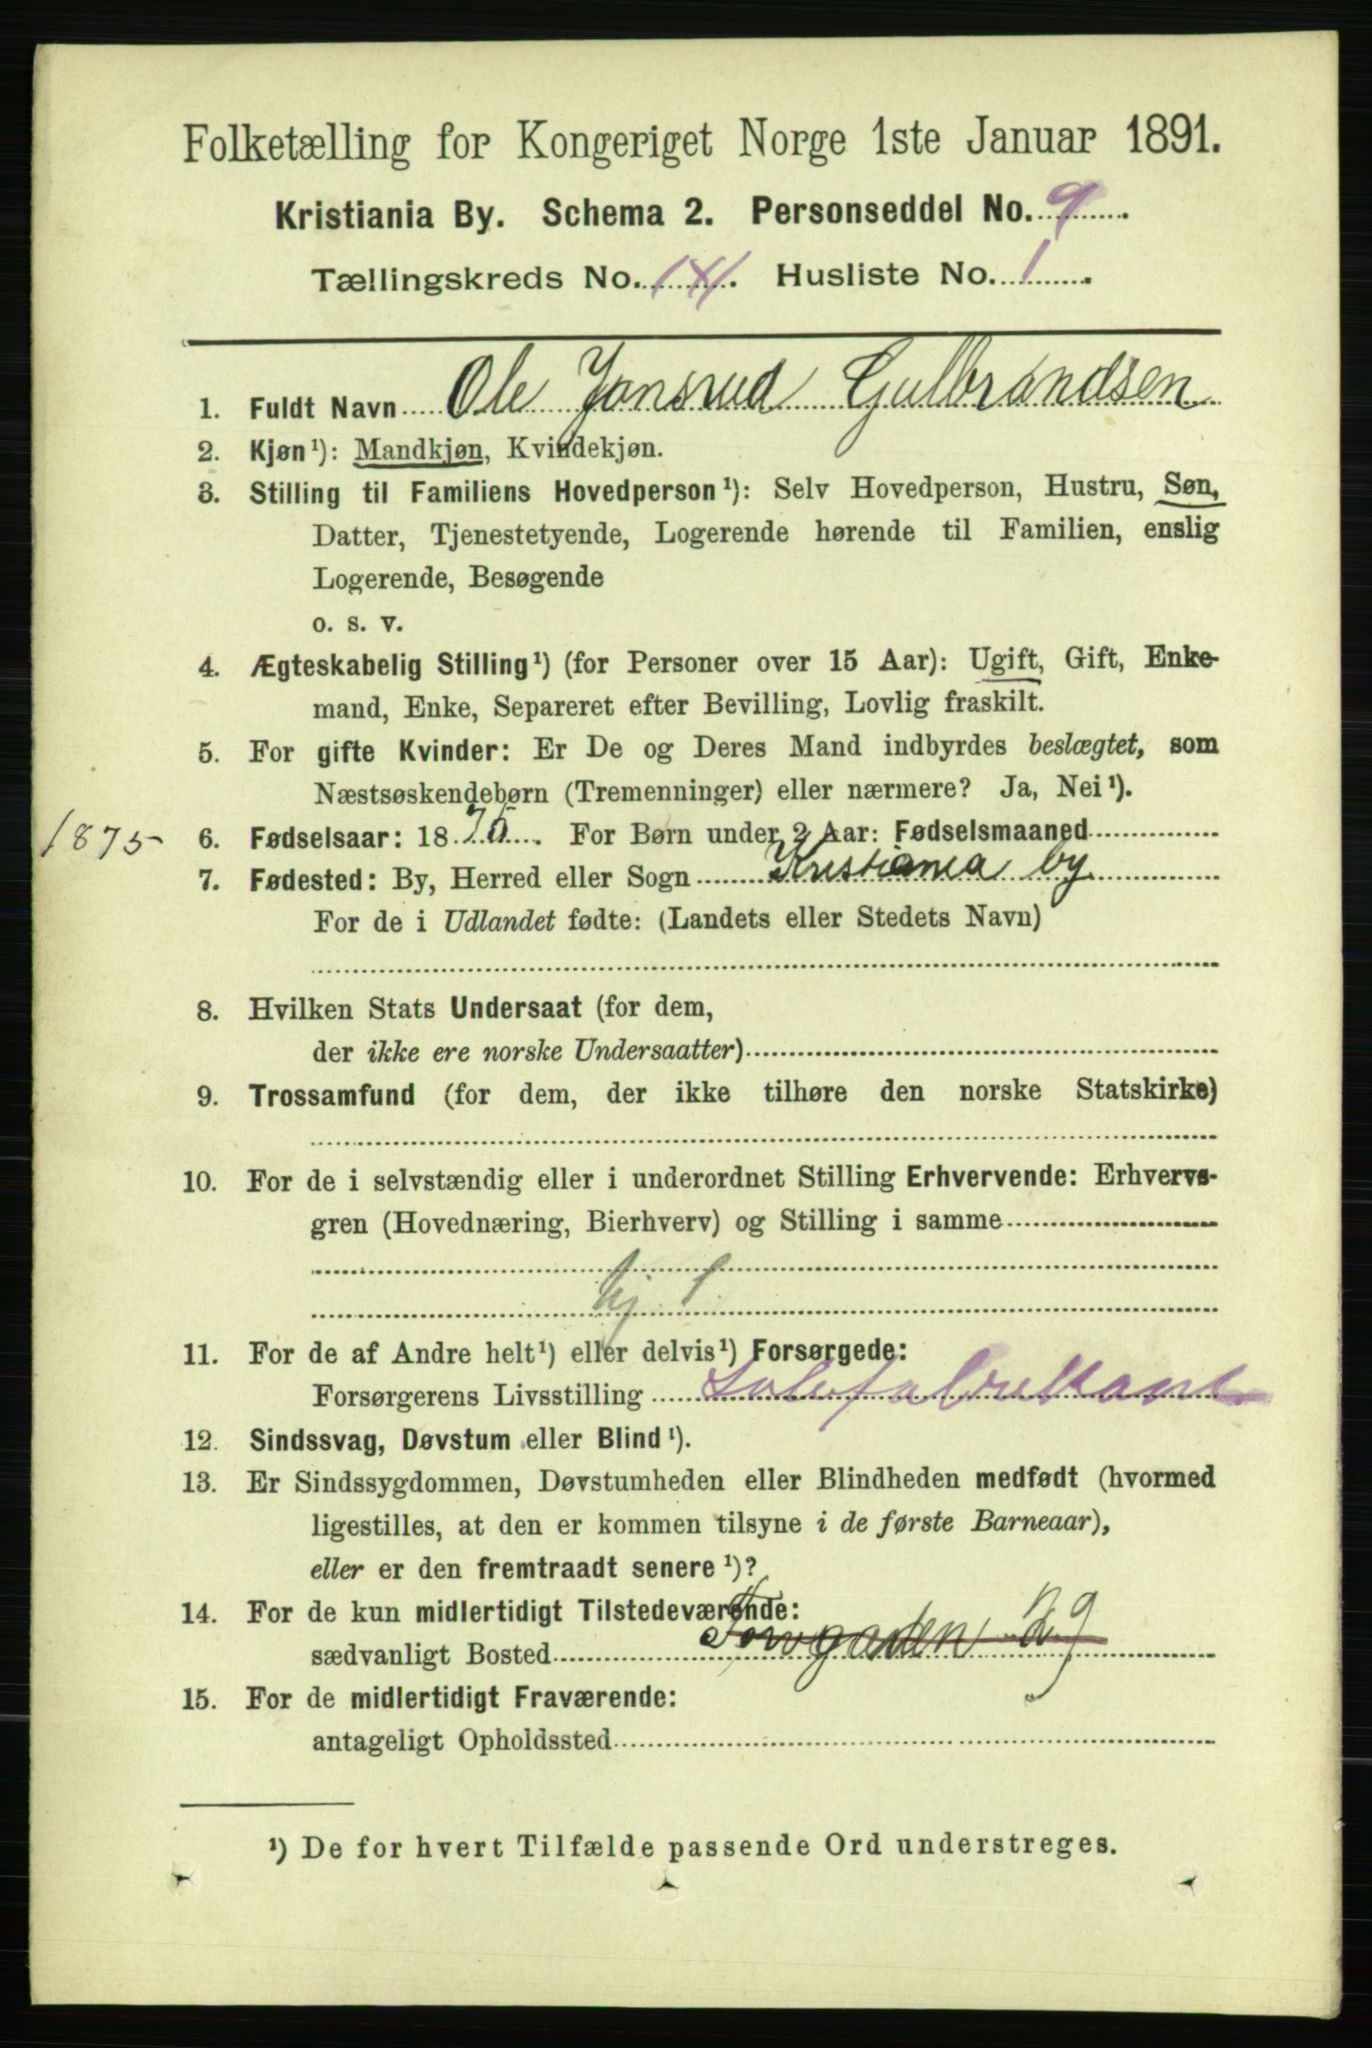 Folketælling for Kongeriget Norge 1ste Januar 1891.
Kristiania By. Schema 2. Personseddel No. 9.
Tællingskreds No. 141. Husliste No. 1.
1. Fuldt Navn Ole Jonsrud Gulbrandsen
2. Kjøn¹): Mandkjøn, Kvindekjøn.
3. Stilling til Familiens Hovedperson¹): Selv Hovedperson, Hustru, Søn,
Datter, Tjenestetyende, Logerende hørende til Familien, enslig
Logerende, Besøgende
o. s. v.
4. Ægteskabelig Stilling¹) (for Personer over 15 Aar): Ugift, Gift, Enke-
mand, Enke, Separeret efter Bevilling, Lovlig fraskilt.
5. For gifte Kvinder: Er De og Deres Mand indbyrdes beslægtet, som
Næstsøskendebørn (Tremenninger) eller nærmere? Ja, Nei¹).
1875 6. Fødselsaar: 1875. For Børn under 2 Aar: Fødselsmaaned
7. Fødested: By, Herred eller Sogn Kristiania by
For de i Udlandet fødte: (Landets eller Stedets Navn)
8. Hvilken Stats Undersaat (for dem,
der ikke ere norske Undersaatter)
9. Trossamfund (for dem, der ikke tilhøre den norske Statskirke)
10. For de i selvstændig eller i underordnet Stilling Erhvervende: Erhvervs-
gren (Hovednæring, Bierhverv) og Stilling i samme
11. For de af Andre helt¹) eller delvis¹) Forsørgede:
Forsørgerens Livsstilling
12. Sindssvag, Døvstum eller Blind¹).
13. Er Sindssygdommen, Døvstumheden eller Blindheden medfødt (hvormed
ligestilles, at den er kommen tilsyne i de første Barneaar),
eller er den fremtraadt senere¹)?
14. For de kun midlertidigt Tilstedeværende:
sædvanligt Bosted Torvgaden 29
15. For de midlertidigt Fraværende:
antageligt Opholdssted
¹) De for hvert Tilfælde passende Ord understreges.